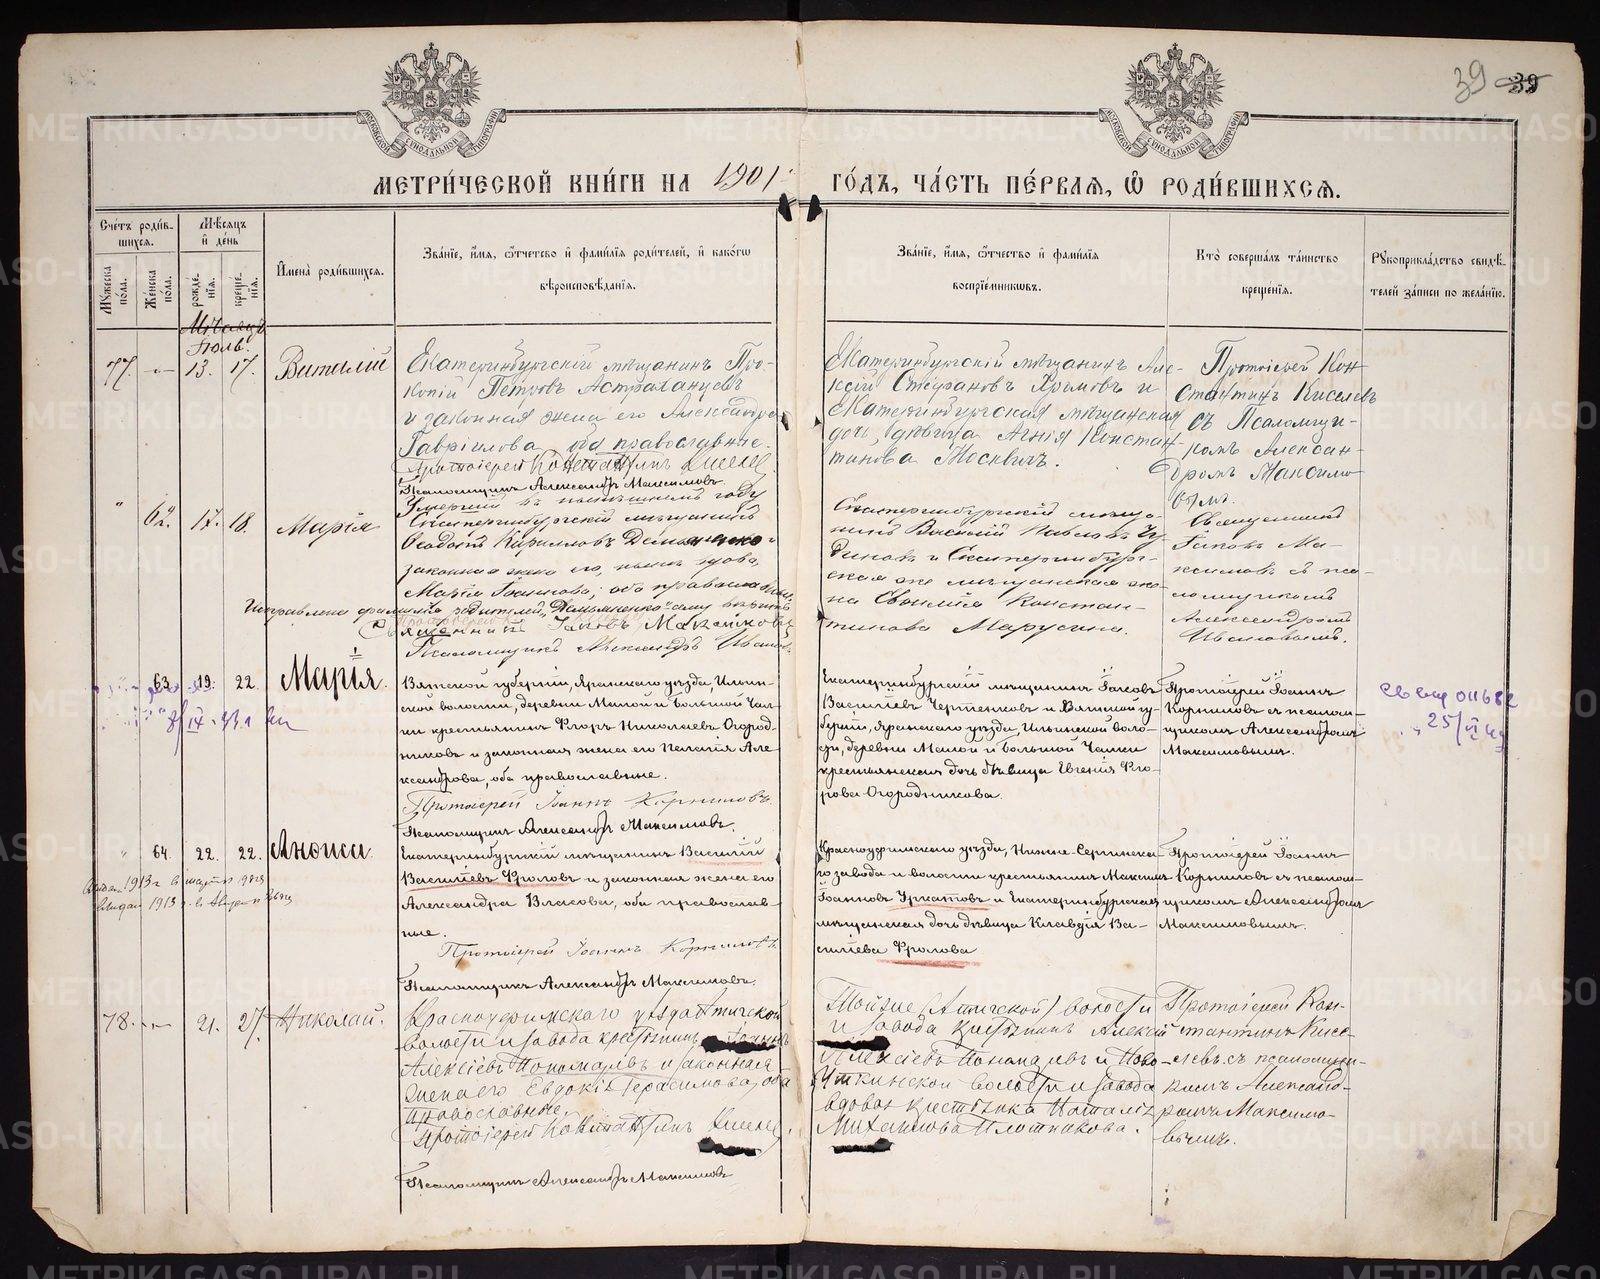 39 39
МЕТРИЧЕСКОЙ КНИГИ НА 1901 ГОДЪ, ЧАСТЬ ПЕРВАЯ, Ѿ РОДИВШИХСЯ.
Счетъ родив-
шихся.
Мужеска пола.
Женска пола.
Мѣсяцъ и день
рожде-
нія.
креще-
нія.
Имена родившихся.
Званіе, имя, ѿтчество и фамилія родителей, и какогѡ
вѣроисповѣданія.
Званіе, имя, ѿтчество и фамилія
воспріемниковъ.
Кто совершалъ таинство
крещенія.
Рукоприкладство свидѣ-
телей записи по желанію.
Мѣсяцъ
Іюль.
77. — 13. 17. Виталій
Екатеринбургскій мѣщанинъ Про-
копій Петровъ Астраханцевъ
и законная жена его Александра
Гавріилова, оба православные.
Протоіерей Константинъ Киселевъ
Псаломщикъ Александръ Максимовъ.
Екатеринбургскій мѣщанинъ Але-
ксій Стефановъ Хромовъ и
Екатеринбургская мѣщанская
дочь, дѣвица Агнія Констан-
тинова Москвичъ.
Протоіерей Кон-
стантинъ Киселевъ
съ Псаломщи-
комъ Алексан-
дромъ Максимо-
вымъ.
" 62. 17. 18. Марія
Умершій въ нынѣшнемъ году
Екатеринбургскій мѣщанинъ
Ѳеодотъ Кирилловъ
законная жена его, нынѣ вдова,
Марія Іоаннова, оба православные.
Исправлено фамилія родителей "Демьяненко" сему вѣрить
Священникъ Іаковъ Максимовъ
Псаломщикъ Александръ Ивановъ
Екатеринбургскій мѣща-
нинъ Василій Павловъ Чу-
диновъ и Екатеринбург-
ская же мѣщанская же-
на Евлалія Констан-
тинова Марусина.
Священникъ
Іаковъ Ма-
ксимовъ съ пса-
ломщикомъ
Александромъ
Ивановымъ.
63. 19. 22. Марія.
Вятской губерніи, Яранскаго уѣзда, Ильин-
ской волости, деревни Малой и Большой Чал-
ки крестьянинъ Егоръ Николаевъ Огород-
никовъ и законная жена его Пелагія Але-
ксандрова, оба православные.
Протоіерей Іоаннъ Корниловъ.
Псаломщикъ Александръ Максимовъ.
Екатеринбургскій мѣщанинъ Іаковъ
Василіевъ Чертенковъ и Вятской гу-
берніи, Яранскаго уѣзда, Ильинской воло-
сти, деревни Малой и Большой Чалки
крестьянская дочь дѣвица Евгенія Его-
рова Огородникова.
Протоіерей Іоаннъ
Корниловъ съ псалом-
щикомъ Александромъ
Максимовымъ.
011682
" 64. 22. 22. Анѳиса.
Екатеринбургскій мѣщанинъ Василій
Василіевъ Фроловъ и законная жена его
Александра Власова, оба православ-
ные.
Протоіерей Іоаннъ Корниловъ.
Псаломщикъ Александръ Максимовъ.
Красноуфимскаго уѣзда, Нижне-Сергинска-
го завода и волости крестьянинъ Максимъ
Іоанновъ Уркатовъ и Екатеринбургская
мѣщанская дочь дѣвица Клавдія Ва-
силіева Фролова
Протоіерей Іоаннъ
Корниловъ съ псалом-
щикомъ Александромъ
Максимовымъ.
78. — 21. 27. Николай.
Красноуфимскаго уѣзда Атигской
волости и завода крестьянинъ Іоаннъ
Алексіевъ Пономаревъ и законная
жена его Евдокія Герасимова, оба
православные.
Протоіерей Константинъ Киселевъ.
Псаломщикъ Александръ Максимовъ
Той же (Атигской) волости
и завода крестьянинъ Алексій
Алексіевъ Пономаревъ и Ново-
Уткинской волости и завода
вдова крестьянка Наталія
Михаилова Плотникова.
Протоіерей Кон-
стантинъ Кисе-
левъ съ псаломщи-
комъ Александ-
ромъ Максимо-
вымъ.
METRIKI.GASO-URAL.RU